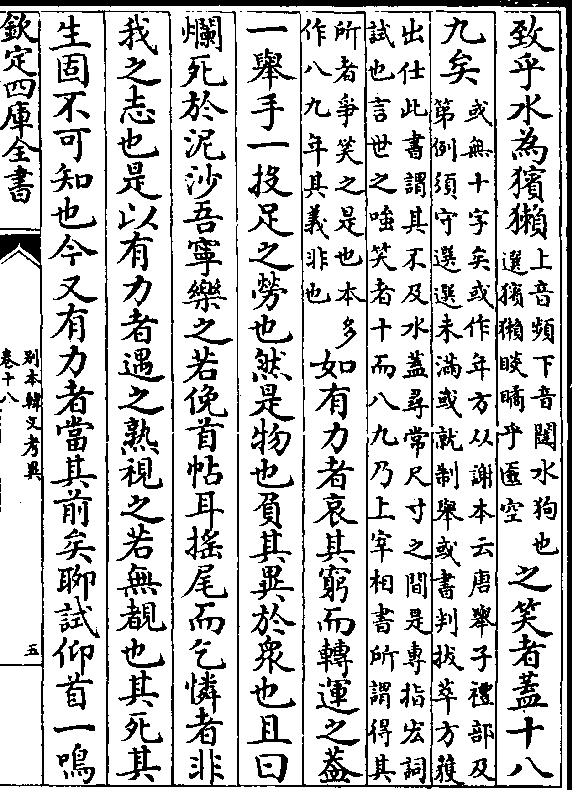 致乎水為獱獺上音頻下音闥水狗也
選獱獺睒瞲乎匱空之笑者蓋十八
九矣或無十字矣或作年方从謝本云唐舉子禮部及
第例須守選選未滿或就制舉或書判拔萃方獲
出仕此書謂其不及水蓋尋常尺寸之間是專指宏詞
試也言世之嗤笑者十而八九乃上宰相書所謂得其
所者爭笑之是也本多
作八九年其義非也如有力者哀其窮而轉運之蓋
一舉手一投足之勞也然是物也負其異於衆也且曰
爛死於泥沙吾寧樂之若俛首帖耳搖尾而乞憐者非
我之志也是以有力者遇之熟視之若無覩也其死其
生固不可知也今又有力者當其前矣聊試仰首一鳴
欽定四庫全書
别本韓文考異
卷十八
五